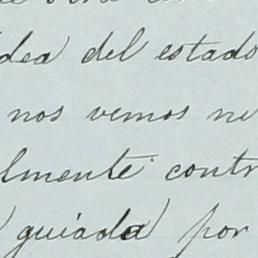 idea del estado
nos vemos ne
lmente contr
guiada por